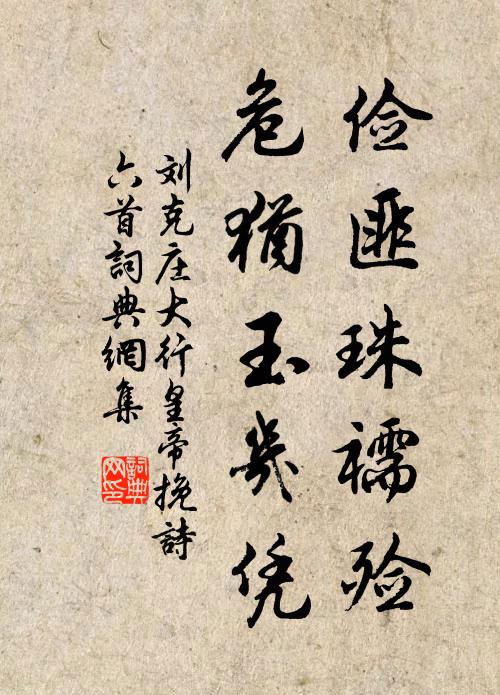 俭匪珠襦殓
危犹玉几凭
刘克庄大行皇帝挽詩
六首詞典網集
詞典
网印